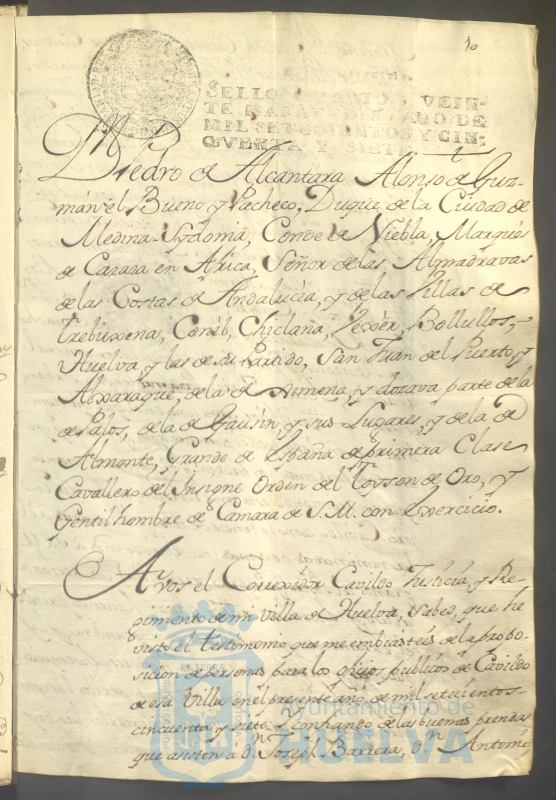 10
SELLO QUARTO, VEIN-
TE MARAVEDIS, AÑO DE
MIL SETECIENTOS Y CIN-
QUENTA Y SIETE.
Dn. Pedro de Alcantara Alonso de Guz-
mán el Bueno y Pacheco, Duque de la Ciudad de
Medina Sydonia, Conde de Niebla, Marqués
de Cazaza en Africa, Señor de las Almadravas
de las Costas de Andalucia, y de las Villas de
Trebuxena, Conil, Chiclana, Vexér, Bollullos,
Huelva, y las de su Partido, San Juan del Puerto y
Alxaraque, de la de Ximena, y dozava parte de la
de Palos, de la de Gausin, y sus Lugares, y de la de
Almonte, Grande de España de primera Clase
Cavallero del Insigne Orden del Toyson de Oro, y
Gentilhombre de Camara de S.M. con Exercicio.
A vos el Correxidor Cavildo Justicia, y Re-
gimiento de mi Villa de Huelva, Sabed, que he
visto el testimonio que me embiasteis de la propo-
sicion de personas para los oficios publicos de Cavildo
de esa Villa en el presente año de mil setecientos
cincuenta y siete, y confiando de las buenas prendas
que asisten a Dn. Joseph Barrera, Dn. Antonio
Ayuntamiento de
HUELVA